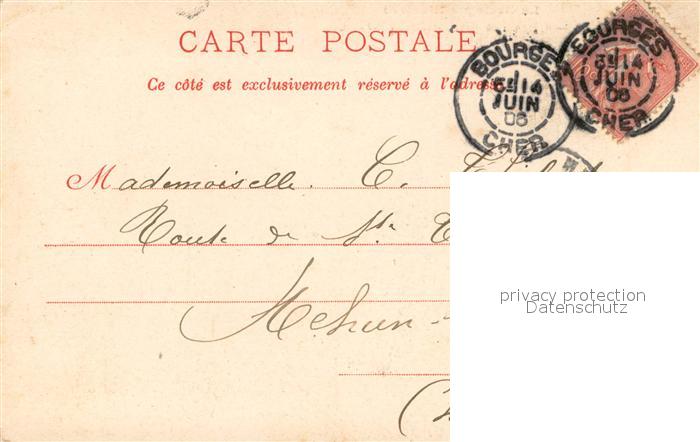 CARTE POSTALE
Ce côté est exclusivement réservé à l'adresse
BOURGES
14
JUIN
06
CHER
BOURGES
14
JUIN
06
CHER
Mademoiselle. C.
Route de Ste
Mehun-
privacy protection
Datenschutz